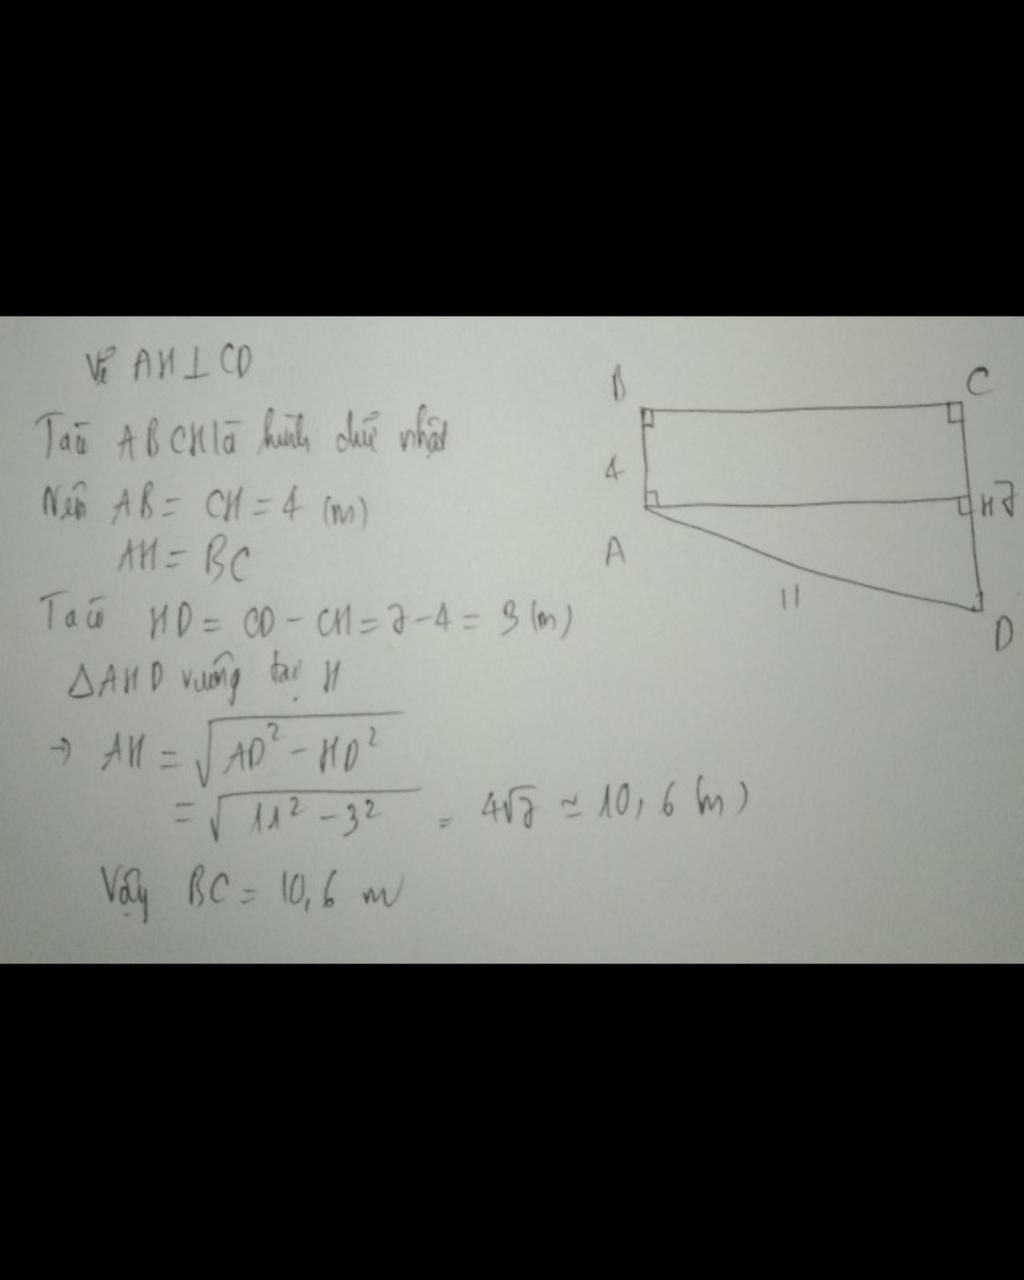 Vẽ AH ⊥ CD
Ta có ABCH là hình chữ nhật
Nên AB = CH = 4 (m)
AH = BC
Ta có HD = CD - CH = 7 - 4 = 3 (m)
ΔAHD vuông tại H
→ AH = √(AD² - HD²)
= √(11² - 3²) = 4√7 ≃ 10,6 (m)
Vậy BC = 10,6 m
B
C
4
H 7
A
11
D